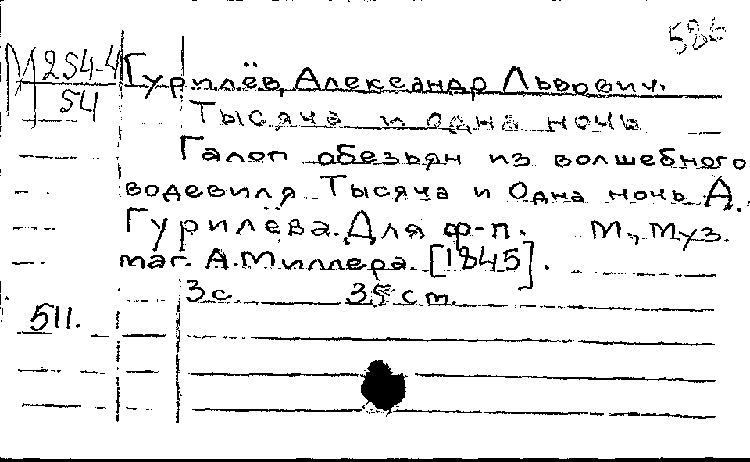 586
М 254-4
54
Гурилёв, Александр Львович.
Тысяча и одна ночь
Галоп обезьян из волшебного
водевиля Тысяча и Одна ночь А.
Гурилёва. Для ф-п. М., Муз.
маг. А. Миллера. [1845].
3 с. 35 см.
511.